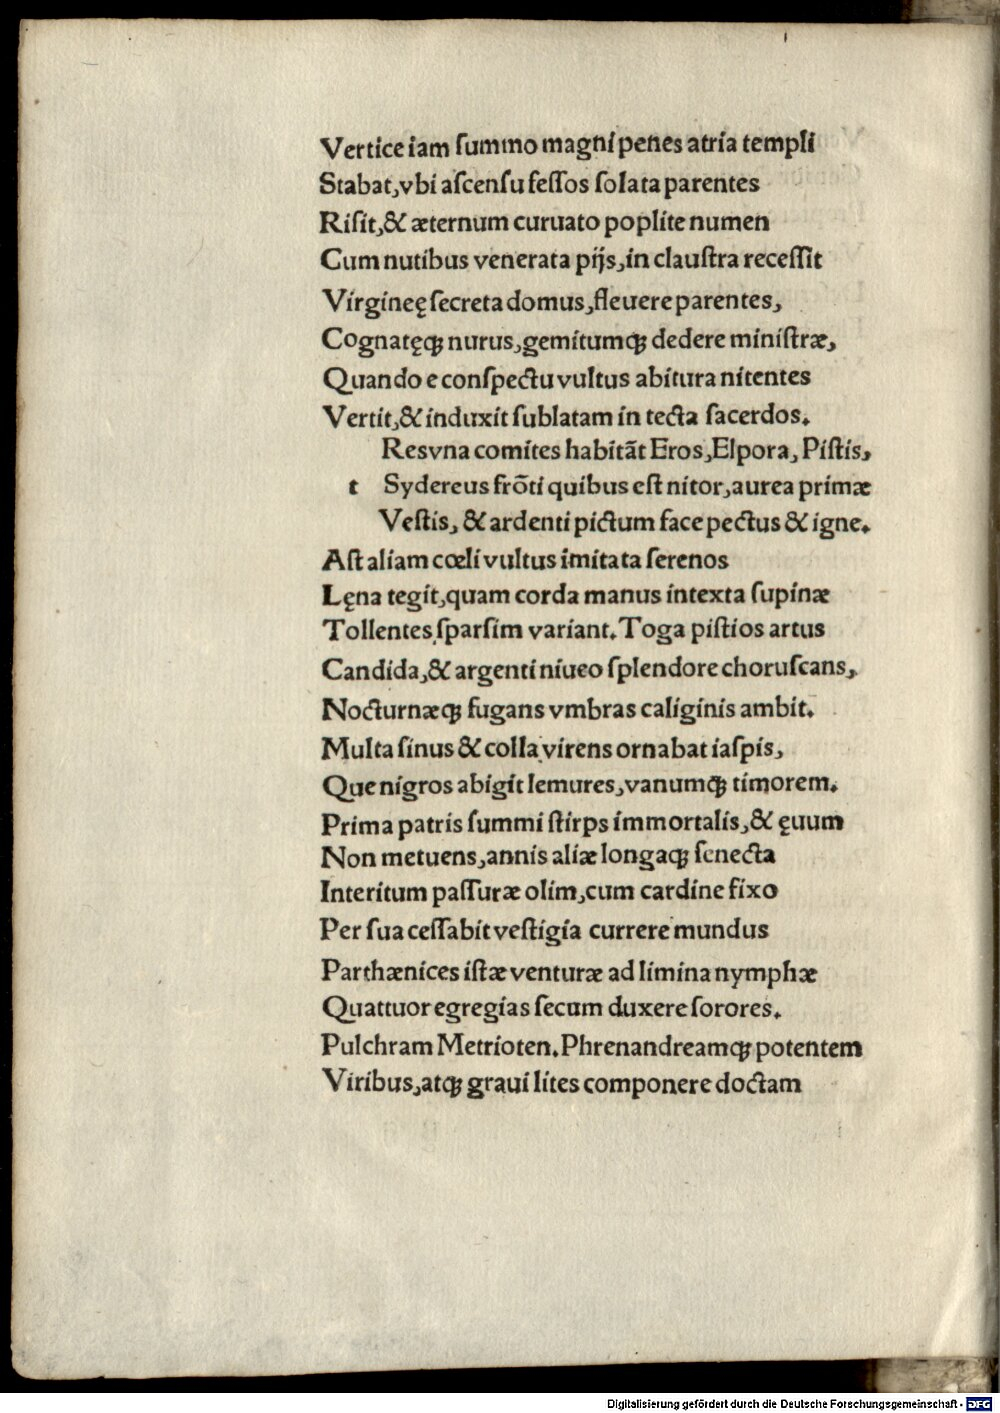 Vertice iam ſummo magni penes atria templi
Stabat,vbi aſcenſu feſſos ſolata parentes
Riſit,& æternum curuato poplite numen
Cum nutibus venerata pijs,in clauſtra receſſit
Virgineę ſecreta domus,fleuere parentes,
Cognatęqꝫ nurus,gemitumqꝫ dedere miniſtræ,
Quando e conſpectu vultus abitura nitentes
Vertit,& induxit ſublatam in tecta ſacerdos.
Resvna comites habitāt Eros,Elpora, Piſtis,
t Sydereus frōti quibus eſt nitor,aurea primæ
Veſtis, & ardenti pictum face pectus & igne.
Aſt aliam cœli vultus imitata ſerenos
Lęna tegit,quam corda manus intexta ſupinæ
Tollentes ſparſim variant.Toga piſtios artus
Candida,& argenti niueo ſplendore choruſcans,
Nocturnæqꝫ fugans vmbras caliginis ambit.
Multa ſinus & colla virens ornabat iaſpis,
Que nigros abigit lemures,vanumqꝫ timorem.
Prima patris ſummi ſtirps immortalis,& ęuum
Non metuens,annis aliæ longaqꝫ ſenecta
Interitum paſſuræ olim,cum cardine fixo
Per ſua ceſſabit veſtigia currere mundus
Parthænices iſtæ venturæ ad limina nymphæ
Quattuor egregias ſecum duxere ſorores.
Pulchram Metrioten.Phrenandreamqꝫ potentem
Viribus,atqꝫ graui lites componere doctam
Digitalisierung gefördert durch die Deutsche Forschungsgemeinschaft - DFG